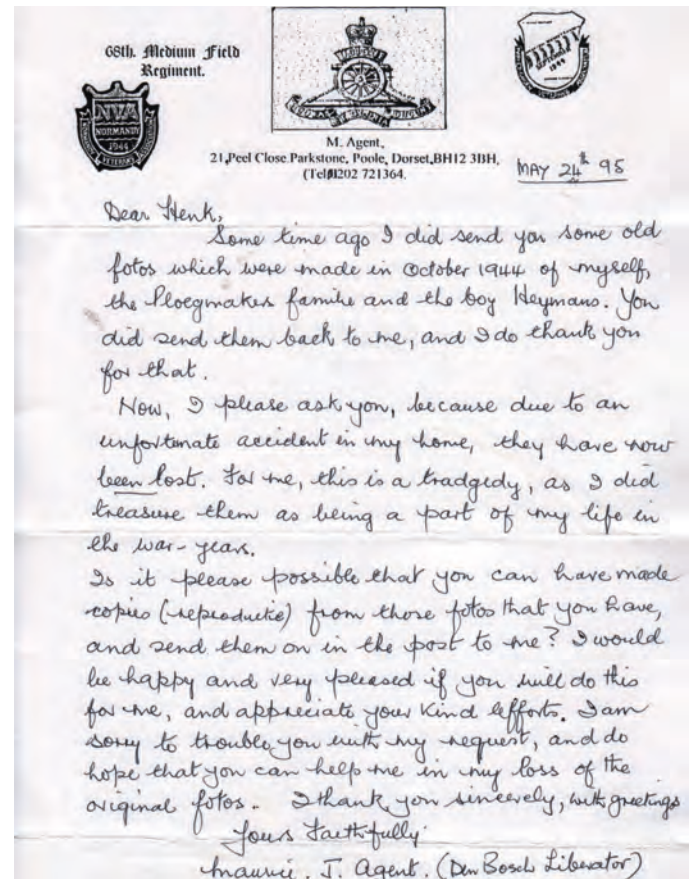 68th. Medium Field
Regiment.
NVA
NORMANDY
1944
VETERANS
1944
M. Agent,
21,Peel Close.Parkstone, Poole, Dorset,BH12 3BH,
(Tel 01202 721364.
MAY 24th 95
Dear Henk,
Some time ago I did send you some old
fotos which were made in October 1944 of myself,
the Ploegmakers familie and the boy Heymans. You
did send them back to me, and I do thank you
for that.
Now, I please ask you, because due to an
unfortunate accident in my home, they have now
been lost. For me, this is a tradgedy, as I did
treasure them as being a part of my life in
the war-years.
Is it please possible that you can have made
copies (reproductie) from those fotos that you have,
and send them on in the post to me? I would
be happy and very pleased if you will do this
for me, and appreciate your kind efforts. I am
sorry to trouble you with my request, and do
hope that you can help me in my loss of the
original fotos. I thank you sincerely, with greetings
Yours Faithfully
Maurice. J. Agent. (Den Bosch Liberator)